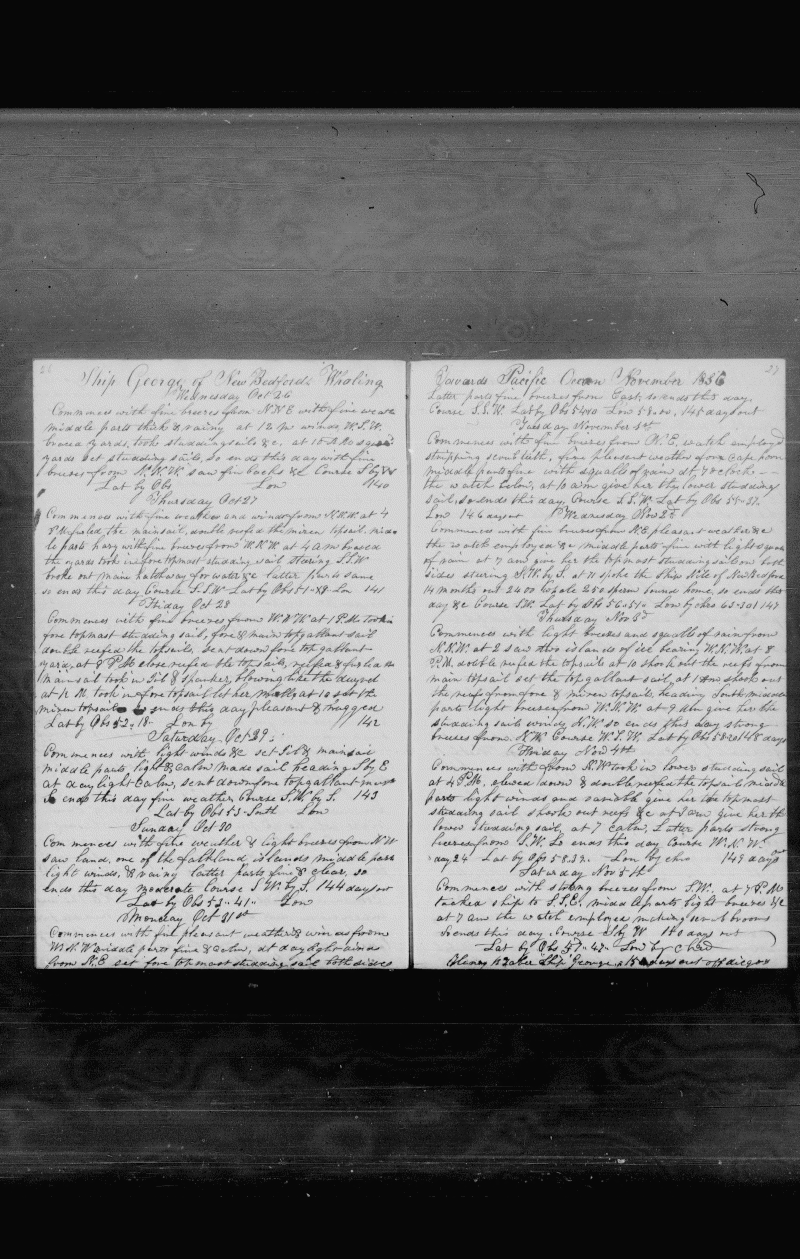 26
Ship George of New Bedford Whaling
Wednesday Oct 26
Commences with fine breezes from N.N.E with fine weat
middle parts thick & rainy at 12 M winds W.S.W.
braced yards, took studdingsails &c. at 10 A.M
yards set studding sails, so ends this day with fine
breezes from N.N.W. saw fin backs &c Course S by W
Lat by Obs Lon 140
Thursday Oct 27
Commences with fine weather and winds from N.N.W. at 4
P.M furled the mainsail, double reefed the mizen topsail. midd
le parts hazy with fine breezes from W.N.W. at 4 am braced
the yards took in fore topmost studding sail Steering S.S.W
broke out main hatchway for water &c latter parts same
so ends this day Course S.S.W Lat by Obs 51-48 Lon 141
Friday Oct 28
Commences with fine breezes from W.N.W. at 1 P.M. took in
fore topmast studding sail, fore & main top gallant sail
double reefed the topsails, sent down fore top gallant
yard, at 8 P.M close reefed the topsails, reefed & furled the
mainsail took in Jib & spanker, blowing like the
at 12 M. took in fore topsail let her at 10 set the
mizen topsail so ends this day pleasant & rugged
Lat by Obs 52-18- Lon by 142
Saturday Oct 29
Commences with light winds &c set Jib & mainsail
middle parts light & calm made sail heading S by E
at daylight Calm, sent down fore topgallant mast
So ends this day fine weather Course S.W. by S. 143
Lat by Obs 53- South Lon
Sunday Oct 30
Commences with fine weather & light breezes from N.W
saw land, one of the falkland islands middle part
light winds, & rainy latter parts fine & clear, so
ends this day moderate Course S.W. by S. 144 days out
Lat by Obs 53-41" Lon
Monday Oct 31st
Commences with fine pleasant weather & winds from
W.N.W middle parts fine & calm, at daylight winds
from N.E set fore top mast studding sail both sides
27
Towards Pacific Ocean November 1836
Latter parts fine breezes from East. so ends this day
Course S.S.W. Lat by Obs 54.40 Lon 58.00, 145 days out
Tuesday November 1st
Commences with fine breezes from N.E, watch employed
stripping fine pleasent weather for Cape horn
middle parts fine with squalls of rain at 7 oclock --
the watch below, at 10 am give her the lower studding
sail, so ends this day, Course S.S.W. Lat by Obs 55-37.
Lon 146 days out Wednesday Nov 2d
Commences with fine breezes from N.E, pleasant weather &c
the watch employed &c middle parts fine with light squalls
of rain at 7 am give her the top mast studding sail on both
sides stering S.W. by S. at 11 spoke the Ship of New Bedford
14 months out 2400 whale 250 sperm bound home, so ends this
day &c Course S.W. Lat by Obs 56-51" Lon by chro 63-30 147
Thursday Nov 3d
Commences with light breezes and squalls of rain from
N.N.W. at 2 saw two islands of ice bearing W.N.W at 8
P.M. double reefed the topsails at 10 shook out the reefs from
main topsail set the top gallant sail, at 1 am shook out
the reefs from fore & mizen topsail. heading South, middle
parts light breezes from W.N.W at 9 Am give her the
studding sail winds N.W so ends this day strong
breezes from N.W Course W.S.W. Lat by Obs 58-20 148 days
Friday Nov 4th
Commences with from N.W took in lower studding sail
at 4 P.M. clewed down & double reefed the topsails, middle
parts light winds and variable give her the topmost
studding sail shook out reefs &c at 1 am give her the
lower studding sail, at 7 calm, Latter parts strong
breezes from S.W. So ends this day Course W.N.W.
Lat by Obs 58.39. Lon by chro 149 days out
Saturday Nov 5th
Commences with strong breezes from S.W. at 7 P.M
tacked ship to S.S.E. middle parts light breezes &c
at 7 am the watch employed making brooms
So ends this day, Course S by W 150 days out
Lat by Obs 57-43- Lon by Chro
Taber Ship George 150 days out off diego